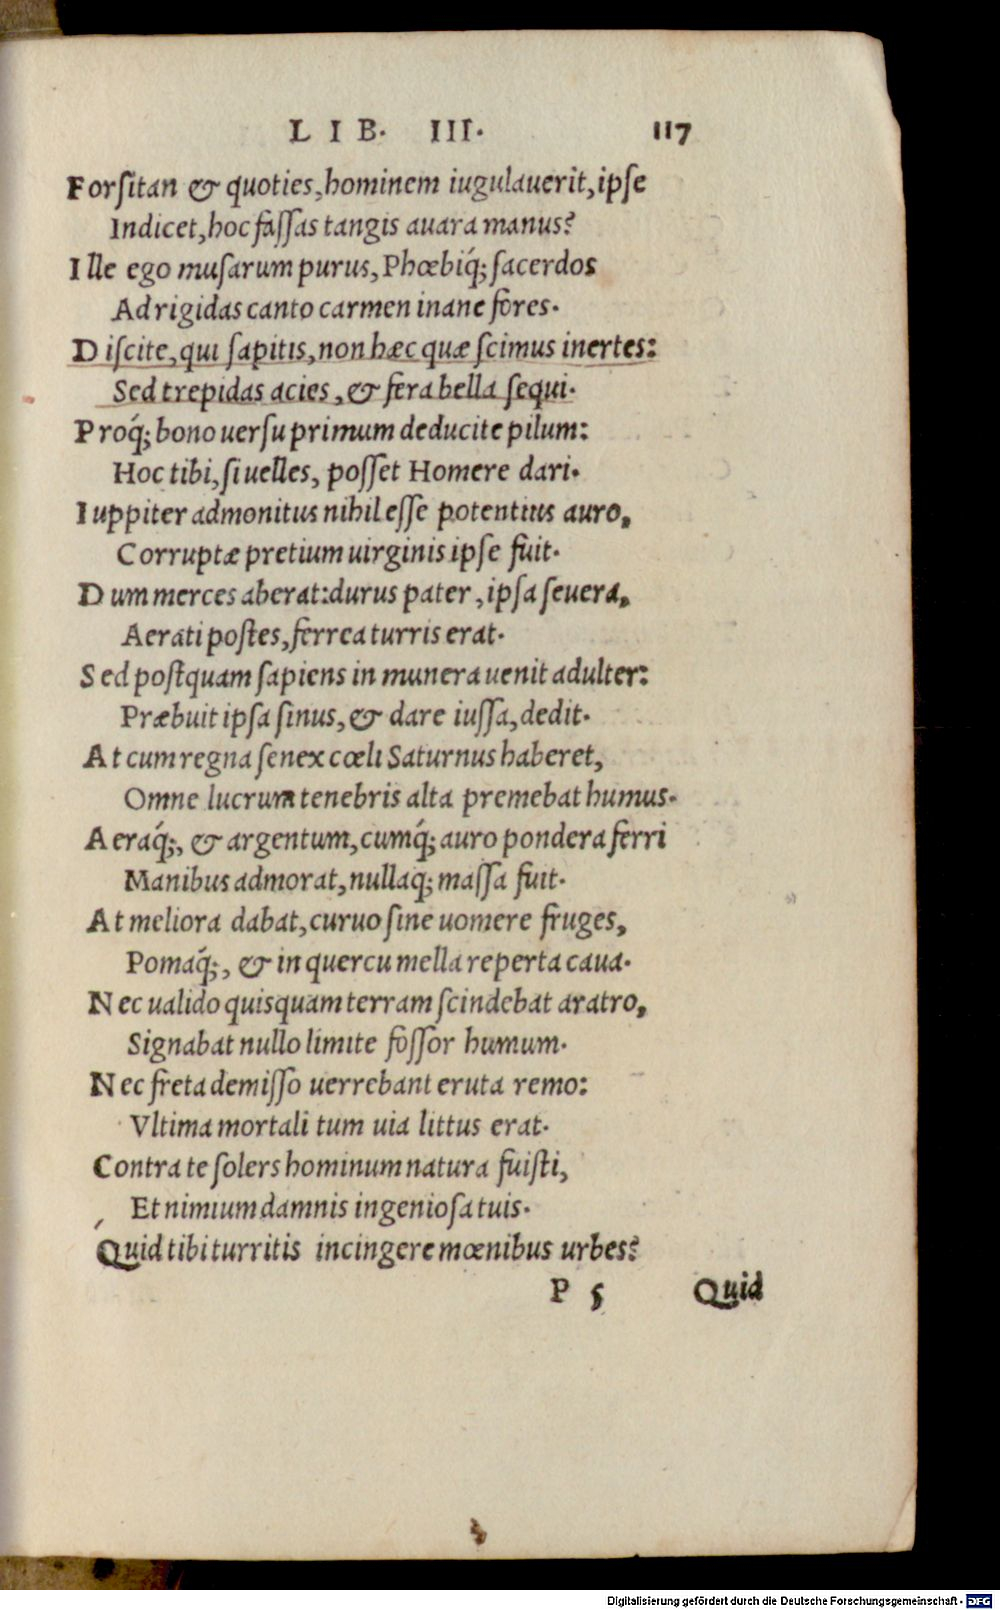 LIB. III. 117
Forſitan & quoties, hominem iugulauerit, ipſe
Indicet, hoc faſſas tangis auara manus?
Ille ego muſarum purus, Phœbiq́; ſacerdos
Ad rigidas canto carmen inane fores.
Diſcite, qui ſapitis, non hæc quæ ſcimus inertes:
Sed trepidas acies, & fera bella ſequi.
Proq́; bono uerſu primum deducite pilum:
Hoc tibi, ſi uelles, poſſet Homere dari.
Iuppiter admonitus nihil eſſe potentius auro,
Corruptæ pretium uirginis ipſe fuit.
Dum merces aberat: durus pater, ipſa ſeuera,
Aerati poſtes, ferrea turris erat.
Sed poſtquam ſapiens in munera uenit adulter:
Præbuit ipſa ſinus, & dare iuſſa, dedit.
At cum regna ſenex cœli Saturnus haberet,
Omne lucrum tenebris alta premebat humus.
Aeraq́;, & argentum, cumq́; auro pondera ferri
Manibus admorat, nullaq́; maſſa fuit.
At meliora dabat, curuo ſine uomere fruges,
Pomaq́;, & in quercu mella reperta caua.
Nec ualido quisquam terram ſcindebat aratro,
Signabat nullo limite foſſor humum.
Nec freta demiſſo uerrebant eruta remo:
Vltima mortali tum uia littus erat.
Contra te ſolers hominum natura fuiſti,
Et nimium damnis ingenioſa tuis.
Quid tibi turritis incingere mœnibus urbes?
P 5 Quid
Digitalisierung gefördert durch die Deutsche Forschungsgemeinschaft - DFG